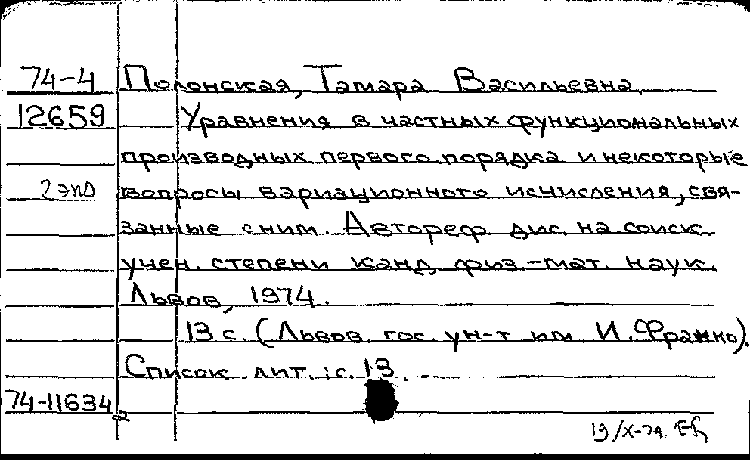 74-4 Полонская, Тамара Васильевна.
12659 Уравнения в частных функциональных
производных первого порядка и некоторые
2 экз вопросы вариационного исчисления, свя-
занные с ним. Автореф. дис. на соиск.
учен. степени канд. физ.-мат. наук.
Львов, 1974.
13 с. (Львов. гос. ун-т им И. Франко).
Список лит.: с. 13.
74-11634
19/X-74.